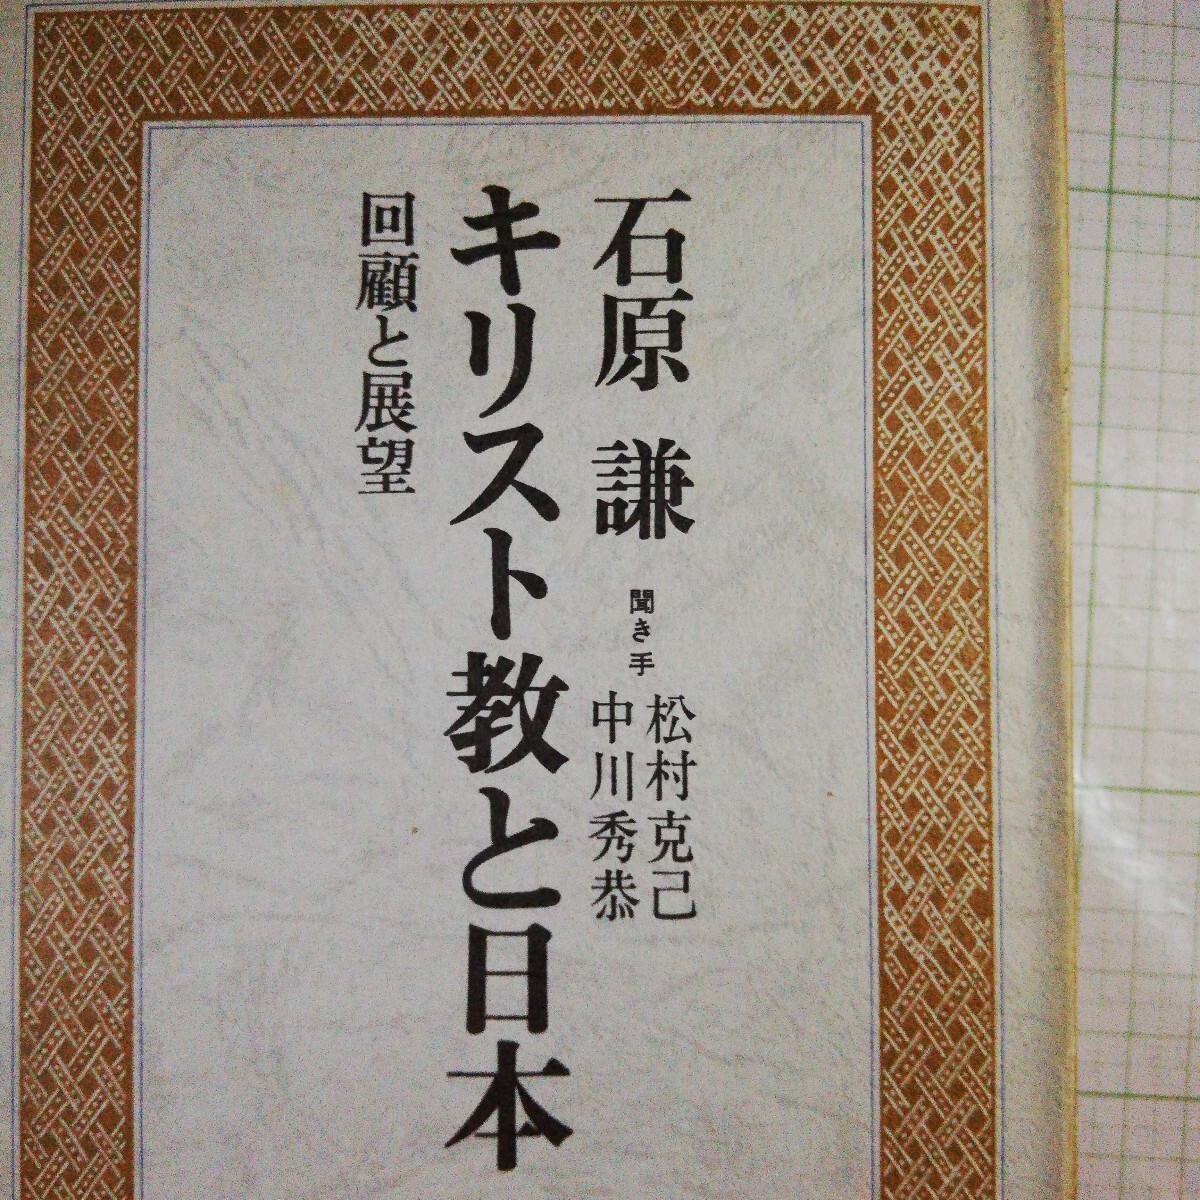 石原 謙
聞き手
松村克己
中川秀恭
キリスト教と日本
回顧と展望